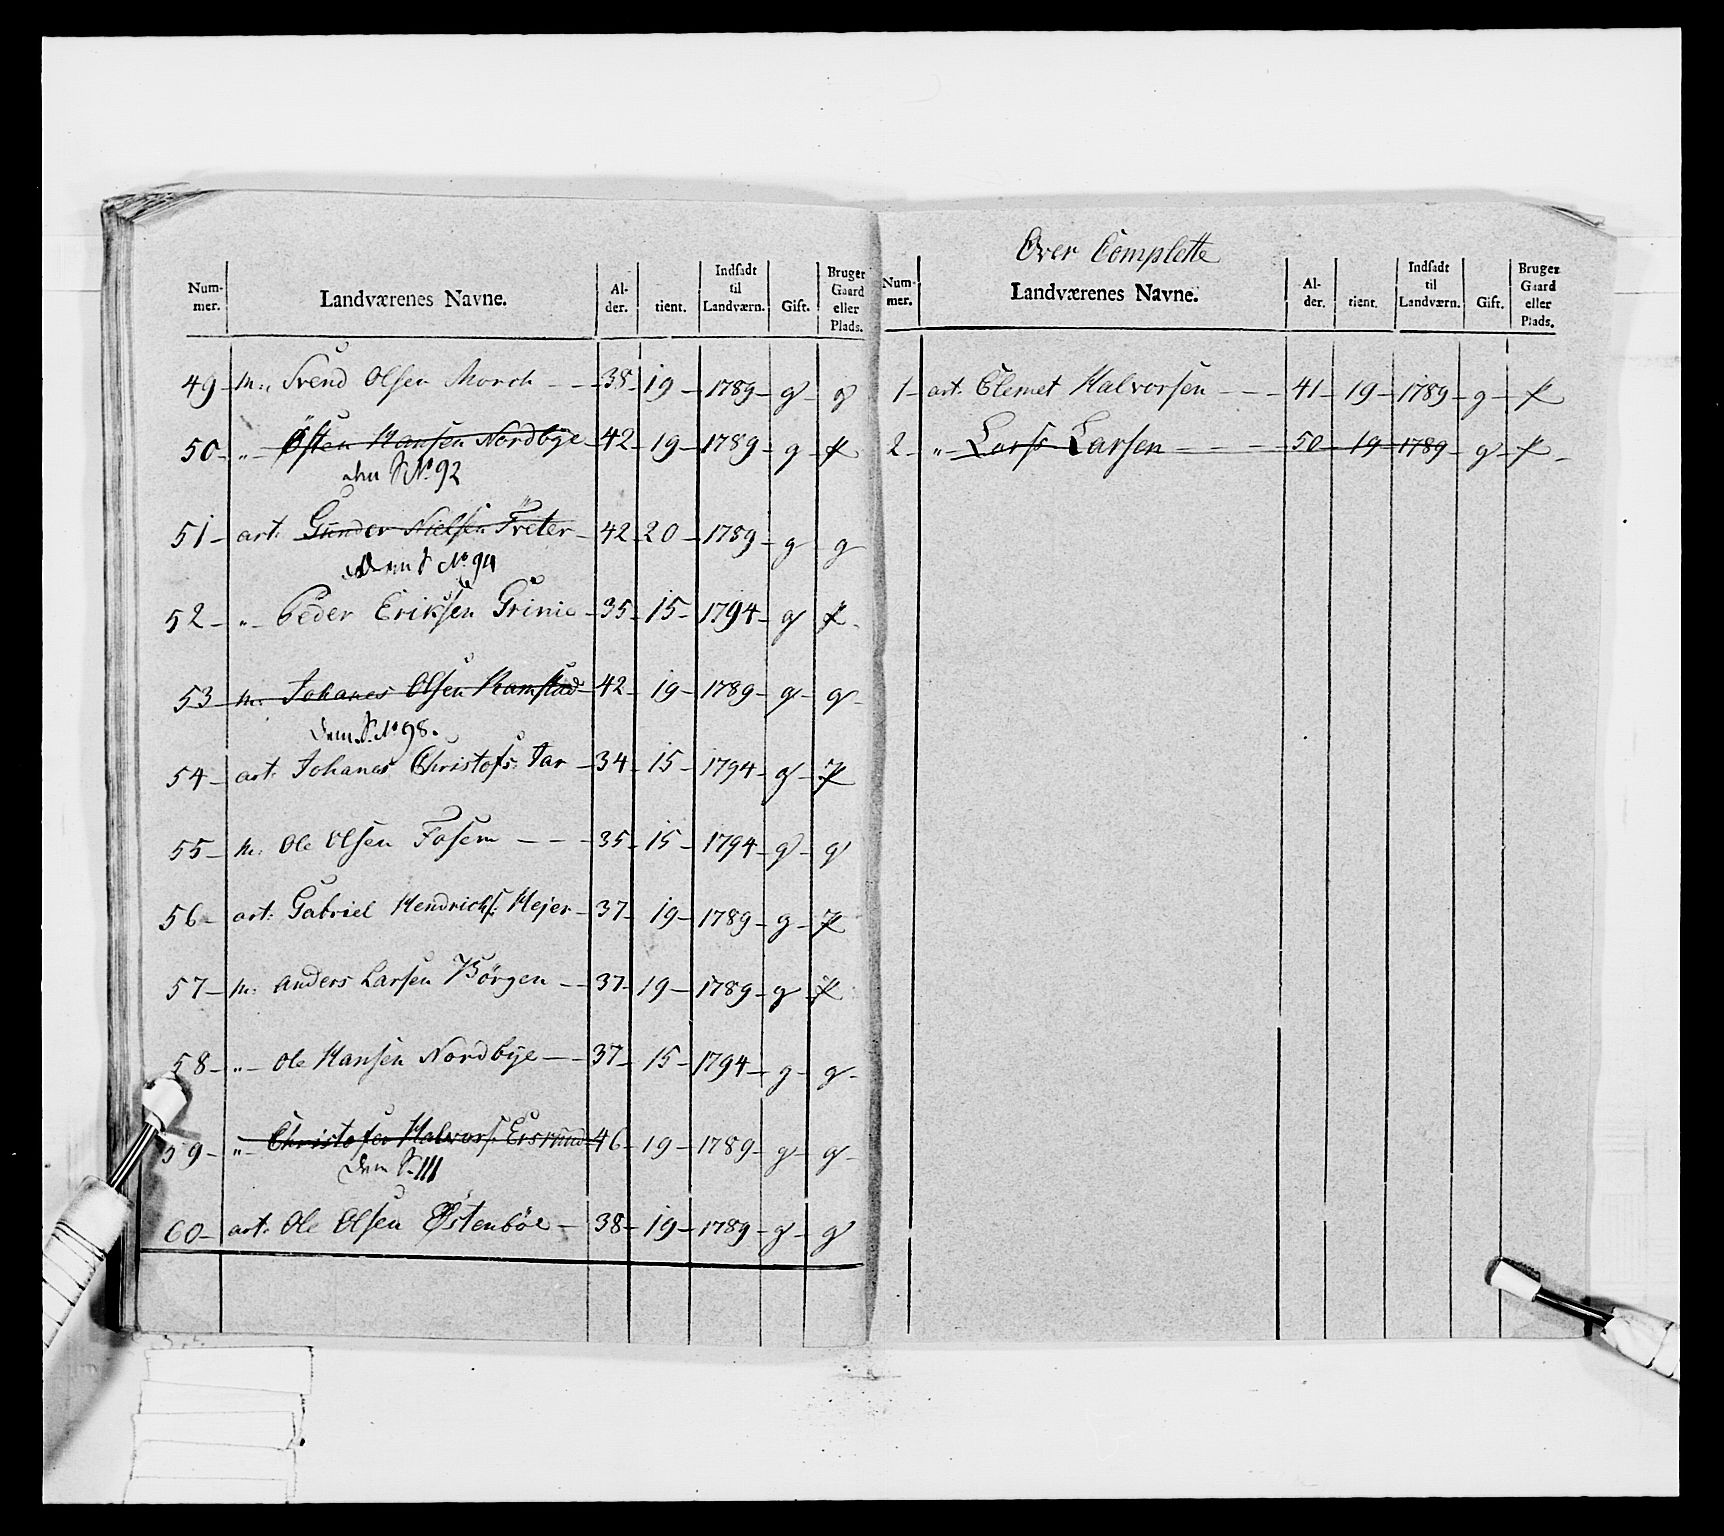 Num-mer. Landværenes Navne. Al-der. tient. Indsadt til Landværn. Gift. Bruger Gaard eller Plads.
49 – m: Svend Olsen Morch – – 38 – 19 – 1789 – g – g
50 – " – Østen Hansen Nordbÿe – 42 – 19 – 1789 – g – f
No. 92
51 – art: Gunder Nielsen Freter – 42 – 20 – 1789 – g – g
No. 94
52 – " – Peder Eriksen Grinie – 35 – 15 – 1794 – g – f –
53 – m: Johanes Olsen Ramstad – 42 – 19 – 1789 – g – g –
No. 98.
54 – art: Johanes Christofs: Jar – 34 – 15 – 1794 – g – f
55 – m: Ole Olsen Fosem – – – 35 – 15 – 1794 – g – g
56 – art: Gabriel Hendrichs: Hejer – 37 – 19 – 1789 – g – f
57 – m: Anders Larsen Börgen – – 37 – 19 – 1789 – g – f
58 – " – Ole Hansen Nordbÿe – – 37 – 15 – 1794 – g – g –
59 – " – Christofer Halvors: 46 – 19 – 1789 – g – g –
111
60 – art: Ole Olsen Østenböe – 38 – 19 – 1789 – g – g
Over Complette
Num-mer. Landværenes Navne. Al-der. tient. Indsadt til Landværn. Gift. Bruger Gaard eller Plads.
1 – art. Clemet Halvorsen – – – 41 – 19 – 1789 – g – f
2 – " – Lars Larsen – – – 50 – 19 – 1789 – g – f –